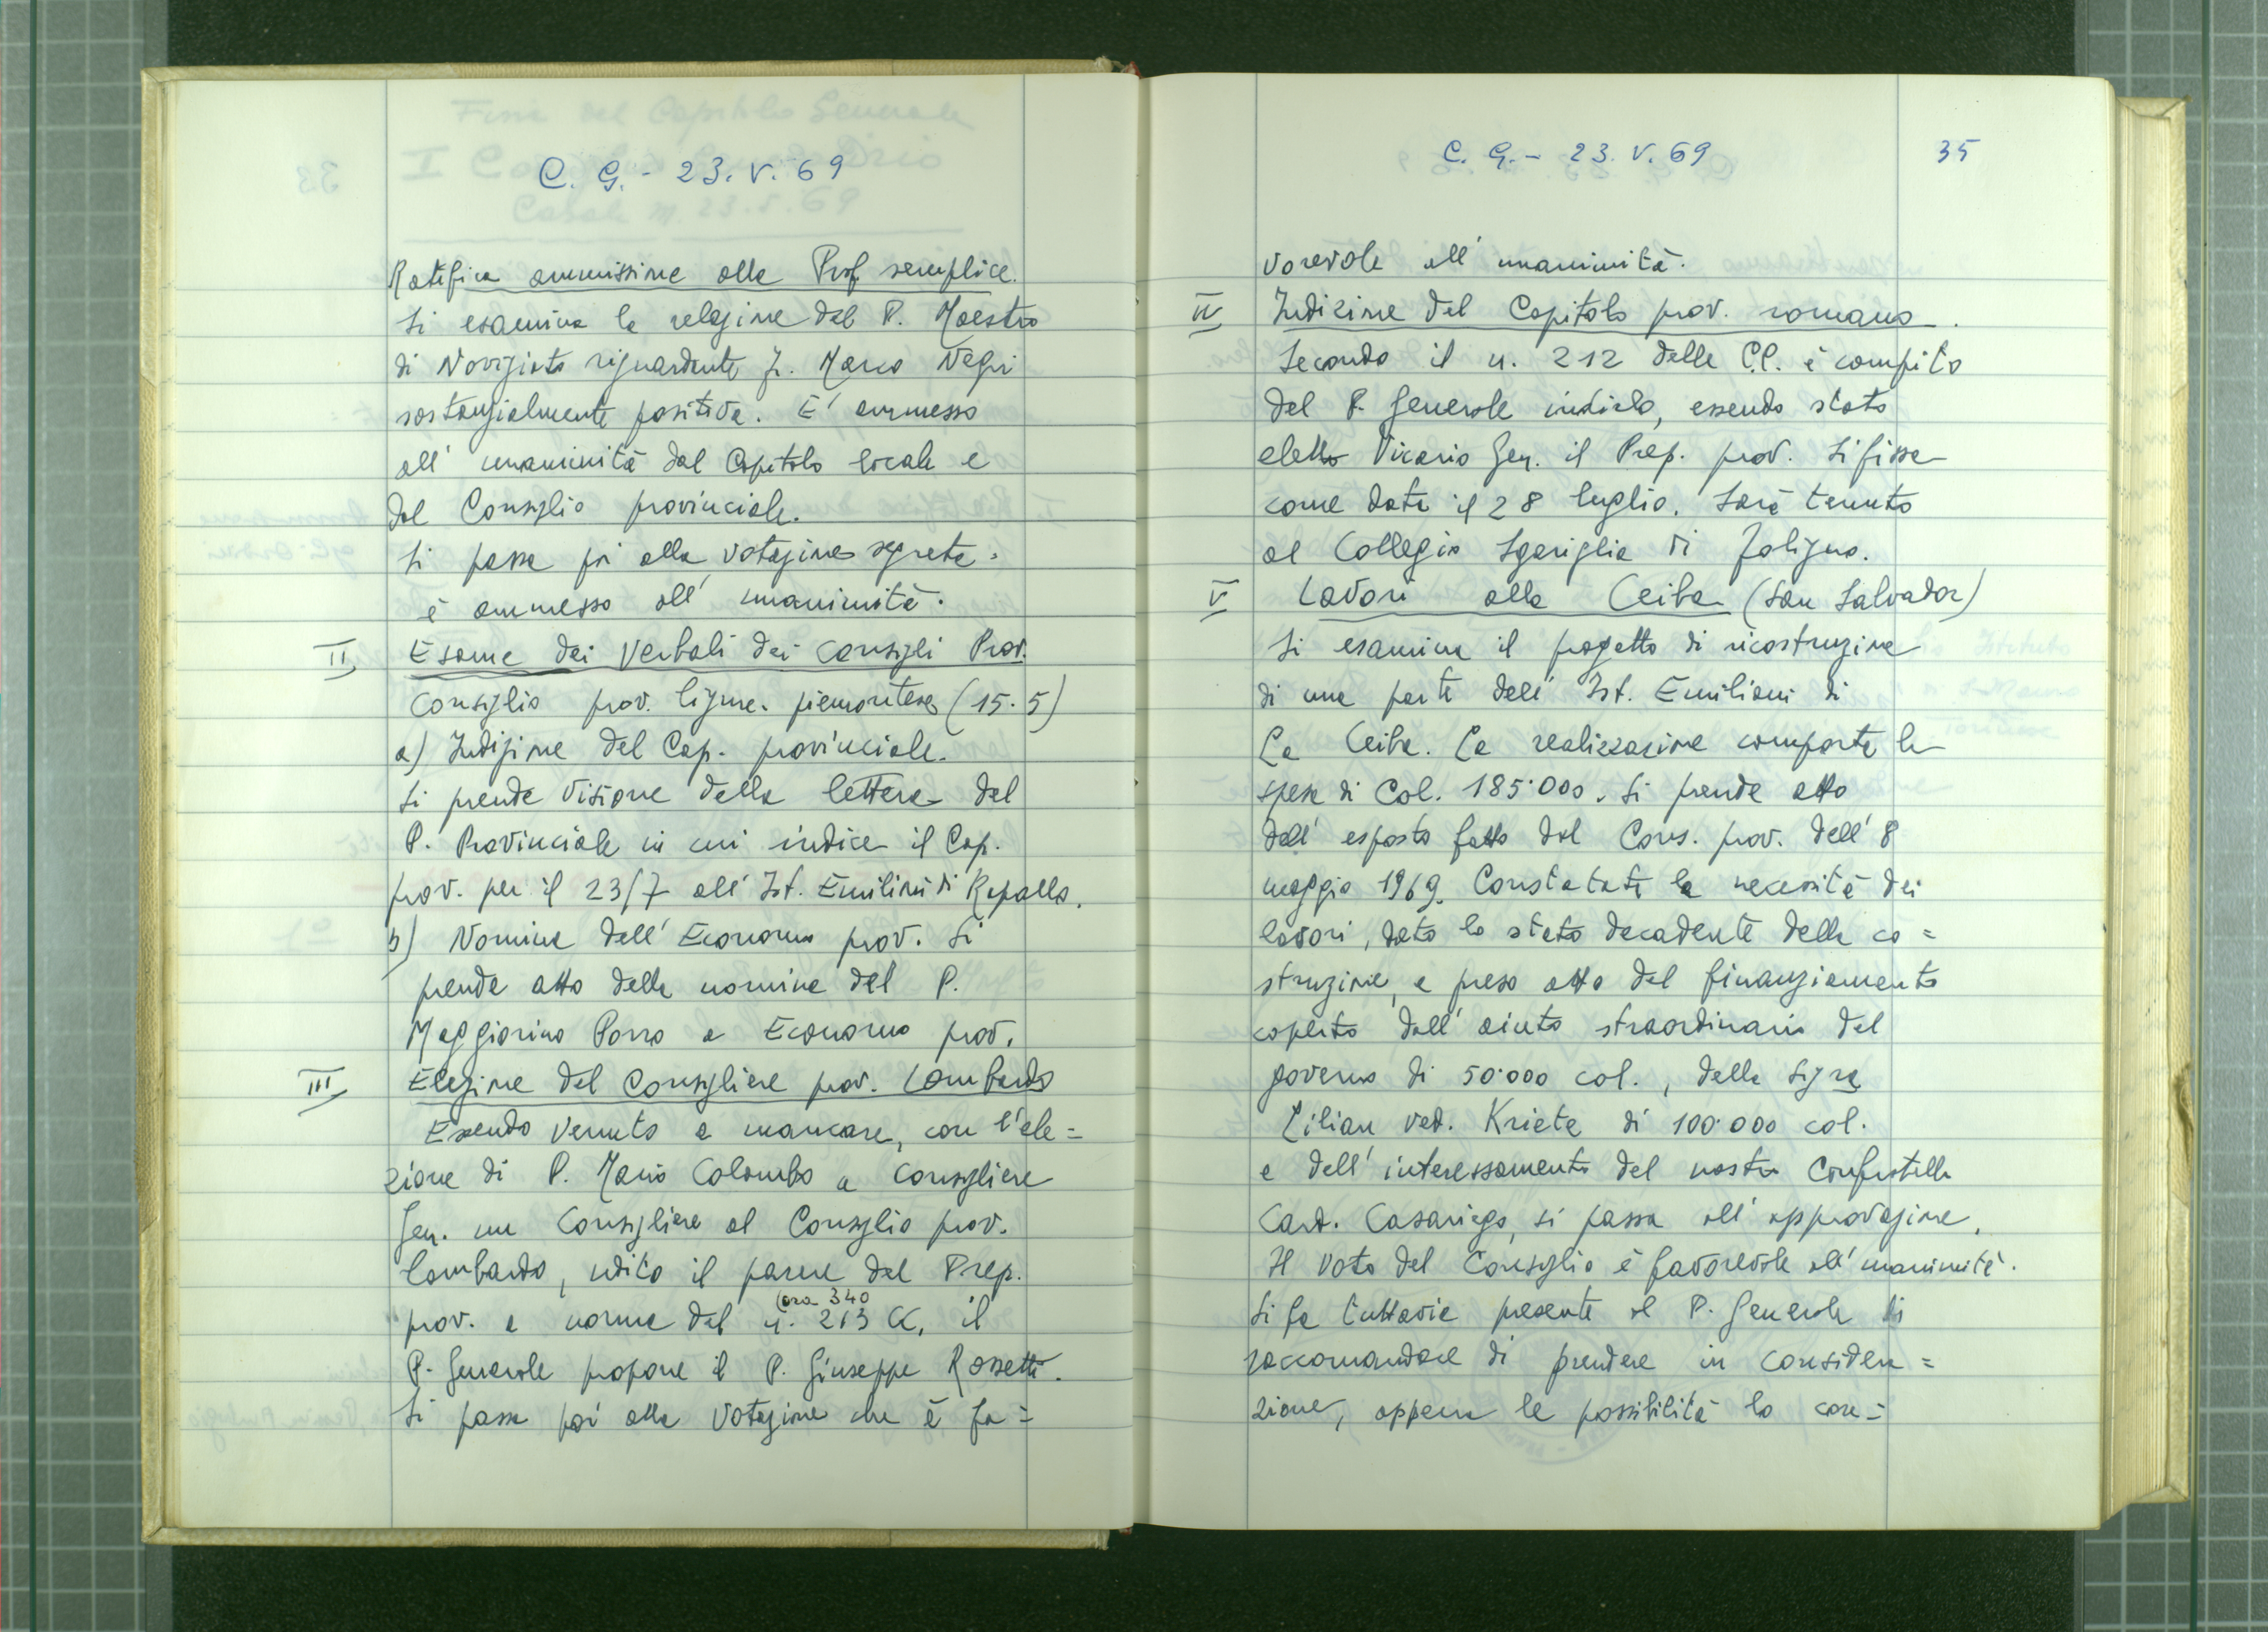 C. G. - 23. V. 69
Ratifica ammissione alla Prof semplice.
Si esamina la relazione del P. Maestro
di Noviziato riguardante fr. Marco Negri
sostanzialmente positiva. E' ammesso
all' unanimità dal Capitolo locale e
dal Consiglio provinciale.
Si passa poi alla votazione segreta.
è ammesso all' unanimità.
II
Esame dei Verbali dei Consigli Prov.
Consiglio prov. ligure-piemontese (15.5)
a) Indizione del Cap. provinciale.
Si prende visione della lettera del
P. Provinciale in cui indice il Cap.
prov. per il 23/7 all' Ist. Emiliani di Rapallo.
b) Nomina dell' Economo prov. Si
prende atto della nomina del P.
Maggiorino Porro a Economo prov.
III
Elezione del Consigliere prov. Lombardo
Essendo venuto a mancare, con l'ele=
zione di P. Mario Colombo a consigliere
Gen. un Consigliere al Consiglio prov.
lombardo, udito il parere del Prep.
(ora 340
prov. a norma del n. 213 CC, il
P. Generale propone il P. Giuseppe Rossetti.
Si passa poi alla votazione che è fa=
C. G. - 23. V. 69
35
vorevole all' unanimità.
IV
Indizione del Capitolo prov. romano.
Secondo il n. 212 delle CC. è compito
del P. Generale indirlo, essendo stato
eletto Vicario Gen. il Prep. prov. Si fissa
come data il 28 luglio. Sarà tenuto
al Collegio Sgariglia di Foligno.
V
Lavori alla Ceiba (San Salvador)
Si esamina il progetto di ricostruzione
di una parte dell' Ist. Emiliani di
La Ceiba. La realizzazione comporta la
spesa di Col. 185.000. Si prende atto
dell' esposto fatto dal Cons. prov. dell' 8
maggio 1969. Constatata la necessità dei
lavori, dato lo stato decadente della co=
struzione, e preso atto del finanziamento
coperto dall' aiuto straordinario del
governo di 50.000 col., della Sigra
Lilian ved. Kriete di 100.000 col.
e dell' interessamento del nostro Confratello
Card. Casariego, si passa all' approvazione.
Il voto del Consiglio è favorevole all' unanimità.
Si fa tuttavia presente al P. Generale di
raccomandare di prendere in considera=
zione, appena le possibilità lo con=